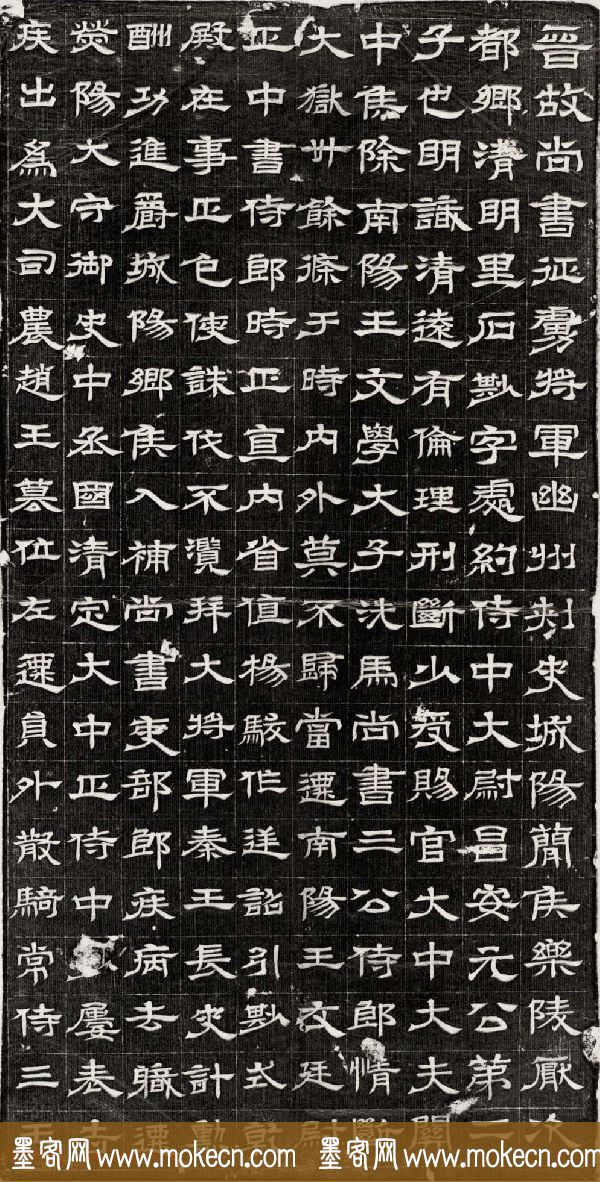 晉故尚書征虜將軍幽州刾史城陽簡侯樂陵厭次
都鄉清明里石尠字處約侍中大尉昌安元公第二
子也明識清遠有倫理刑斷少受賜官大中大夫關
中侯除南陽王文學大子洗馬尚書三公侍郎情斷
大獄卅餘條于時內外莫不歸當遷南陽王文廷尉
正中書侍郎時正直內省值楊駿作逆詔引尠式乾
殿在事正色使誅伐不濫拜大將軍秦王長史計勳
酬功進爵城陽鄉侯入補尚書吏部郎疾病去職遷
滎陽大守御史中丞國清定大中正侍中屢表
疾出為大司農趙王篡位左遷員外散騎常侍三王
墨客网 www.mokecn.com 墨客网 www.mokecn.com